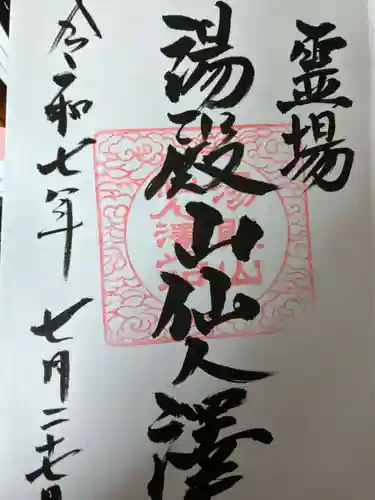 霊場
湯殿山仙人澤
令和七年 七月二十七日